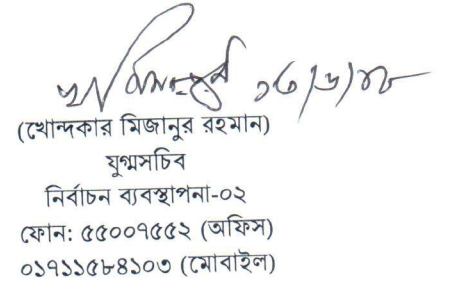 ১৩/৬/১৮
(খোন্দকার মিজানুর রহমান)
যুগ্মসচিব
নির্বাচন ব্যবস্থাপনা-০২
ফোন: ৫৫০০৭৫৫২ (অফিস)
০১৭১১৫৮৪১০৩ (মোবাইল)